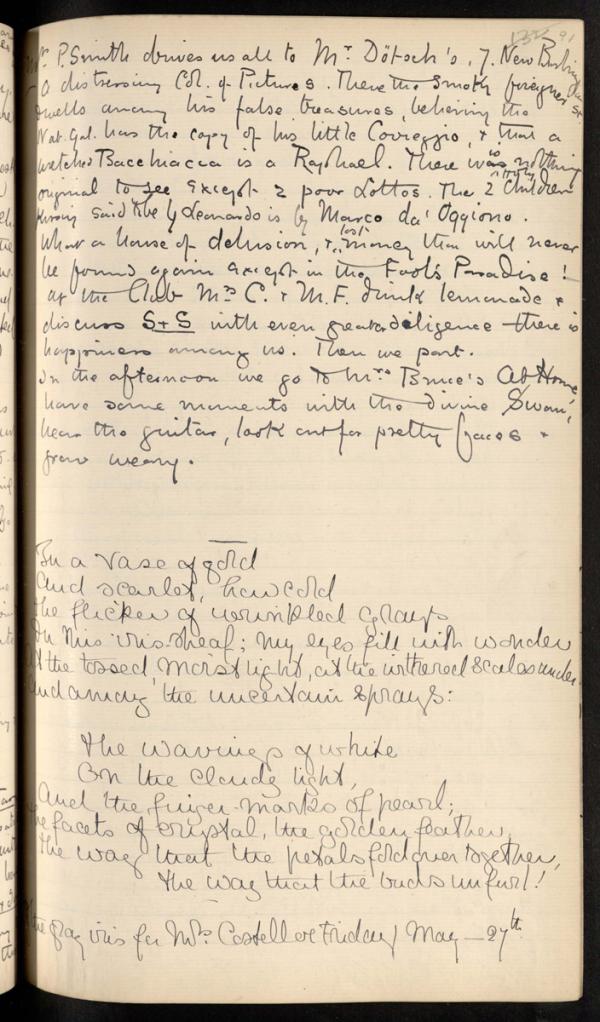 132 91
Mr P. Smith drives us all to Mr Dötsch's, 7. New Burlington St.
a distressing Col. of Pictures. There the smoky foreigner
dwells among his false treasures, believing the
Nat. Gal. has the copy of his little Correggio, & that a
wretched Bacchiacca is a Raphael. There was nothing
original to see except 2 poor Lottos. The 2 Children
kissing said to be by Leonardo is by Marco da' Oggiono.
What a house of delusion, & lost money that will never
be found again except in the Fool's Paradise!
At the Club Mrs C. & M.F. drink lemonade &
discuss S+S with even greater diligence – there is
happiness among us. Then we part.
In the afternoon we go to Mrs Bruce's At Home,
have some moments with the divine 'Swan',
hear the guitar, look out for pretty faces &
grow weary.
In a vase of gold
And scarlet, how cold
The flicker of wrinkled grays
In this iris-sheaf; my eyes fill with wonder
At the tossed, moist light, at the withered scales under
And among the uncertain sprays:
The wavings of white
On the cloudy light,
And the finger-marks of pearl;
The facets of crystal, the golden feather,
The way that the petals fold over together,
The way that the buds unfurl!
The gray iris for Mrs. Costelloe Friday May – 27th